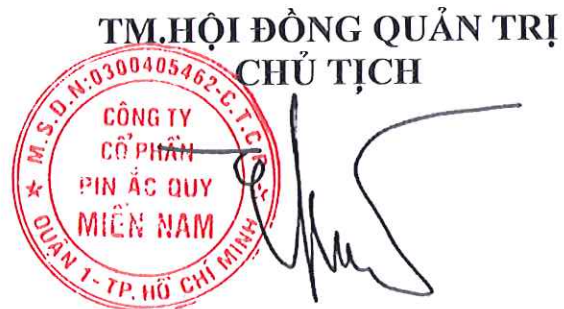 TM.HỘI ĐỒNG QUẢN TRỊ
CHỦ TỊCH
M.S.D.N:0300405462-C.T.C.P
CÔNG TY
CỔ PHẦN
PIN ẮC QUY
MIỀN NAM
QUẬN 1-TP. HỒ CHÍ MINH